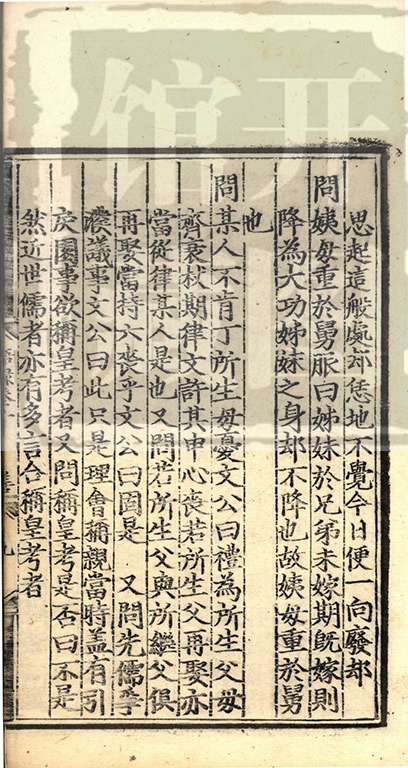 思起這般處却恁地不覺今日便一向廢却
問姨母重於舅服曰姊妹於兄弟未嫁期旣嫁則
降為大功姊妹之身却不降也故姨母重於舅
也
問某人不肯丁所生母憂文公曰禮為所生父母
齊衰杖期律文許其申心喪若所生父再娶亦
當從律某人是也又問若所生父與所繼父俱
再娶當持六喪乎文公曰固是 又問先儒爭
濮議事文公曰此只是理會稱親當時盖有引
戾園事欲稱皇考者又問稱皇考是否曰不是
然近世儒者亦有多言合稱皇考者